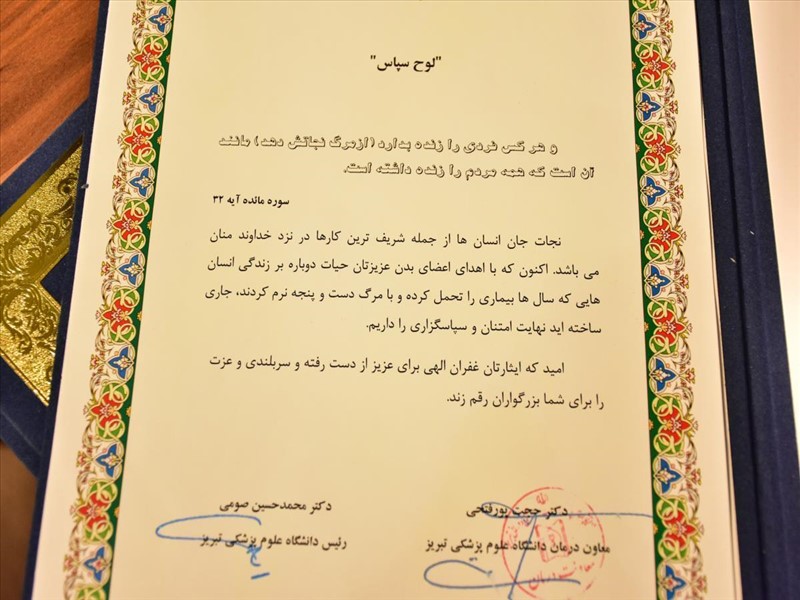 "لوح سپاس"
و هر کس فردی را زنده بدارد (از مرگ نجاتش دهد) مانند
آن است که همه مردم را زنده داشته است.
سوره مائده آیه ۳۲
نجات جان انسان ها از جمله شریف ترین کارها در نزد خداوند منان
می باشد. اکنون که با اهدای اعضای بدن عزیزتان حیات دوباره بر زندگی انسان
هایی که سال ها بیماری را تحمل کرده و با مرگ دست و پنجه نرم کردند، جاری
ساخته اید نهایت امتنان و سپاسگزاری را داریم.
امید که ایثارتان غفران الهی برای عزیز از دست رفته و سربلندی و عزت
را برای شما بزرگواران رقم زند.
دکتر حجت پورفتحی
معاون درمان دانشگاه علوم پزشکی تبریز
دکتر محمدحسین صومی
رئیس دانشگاه علوم پزشکی تبریز